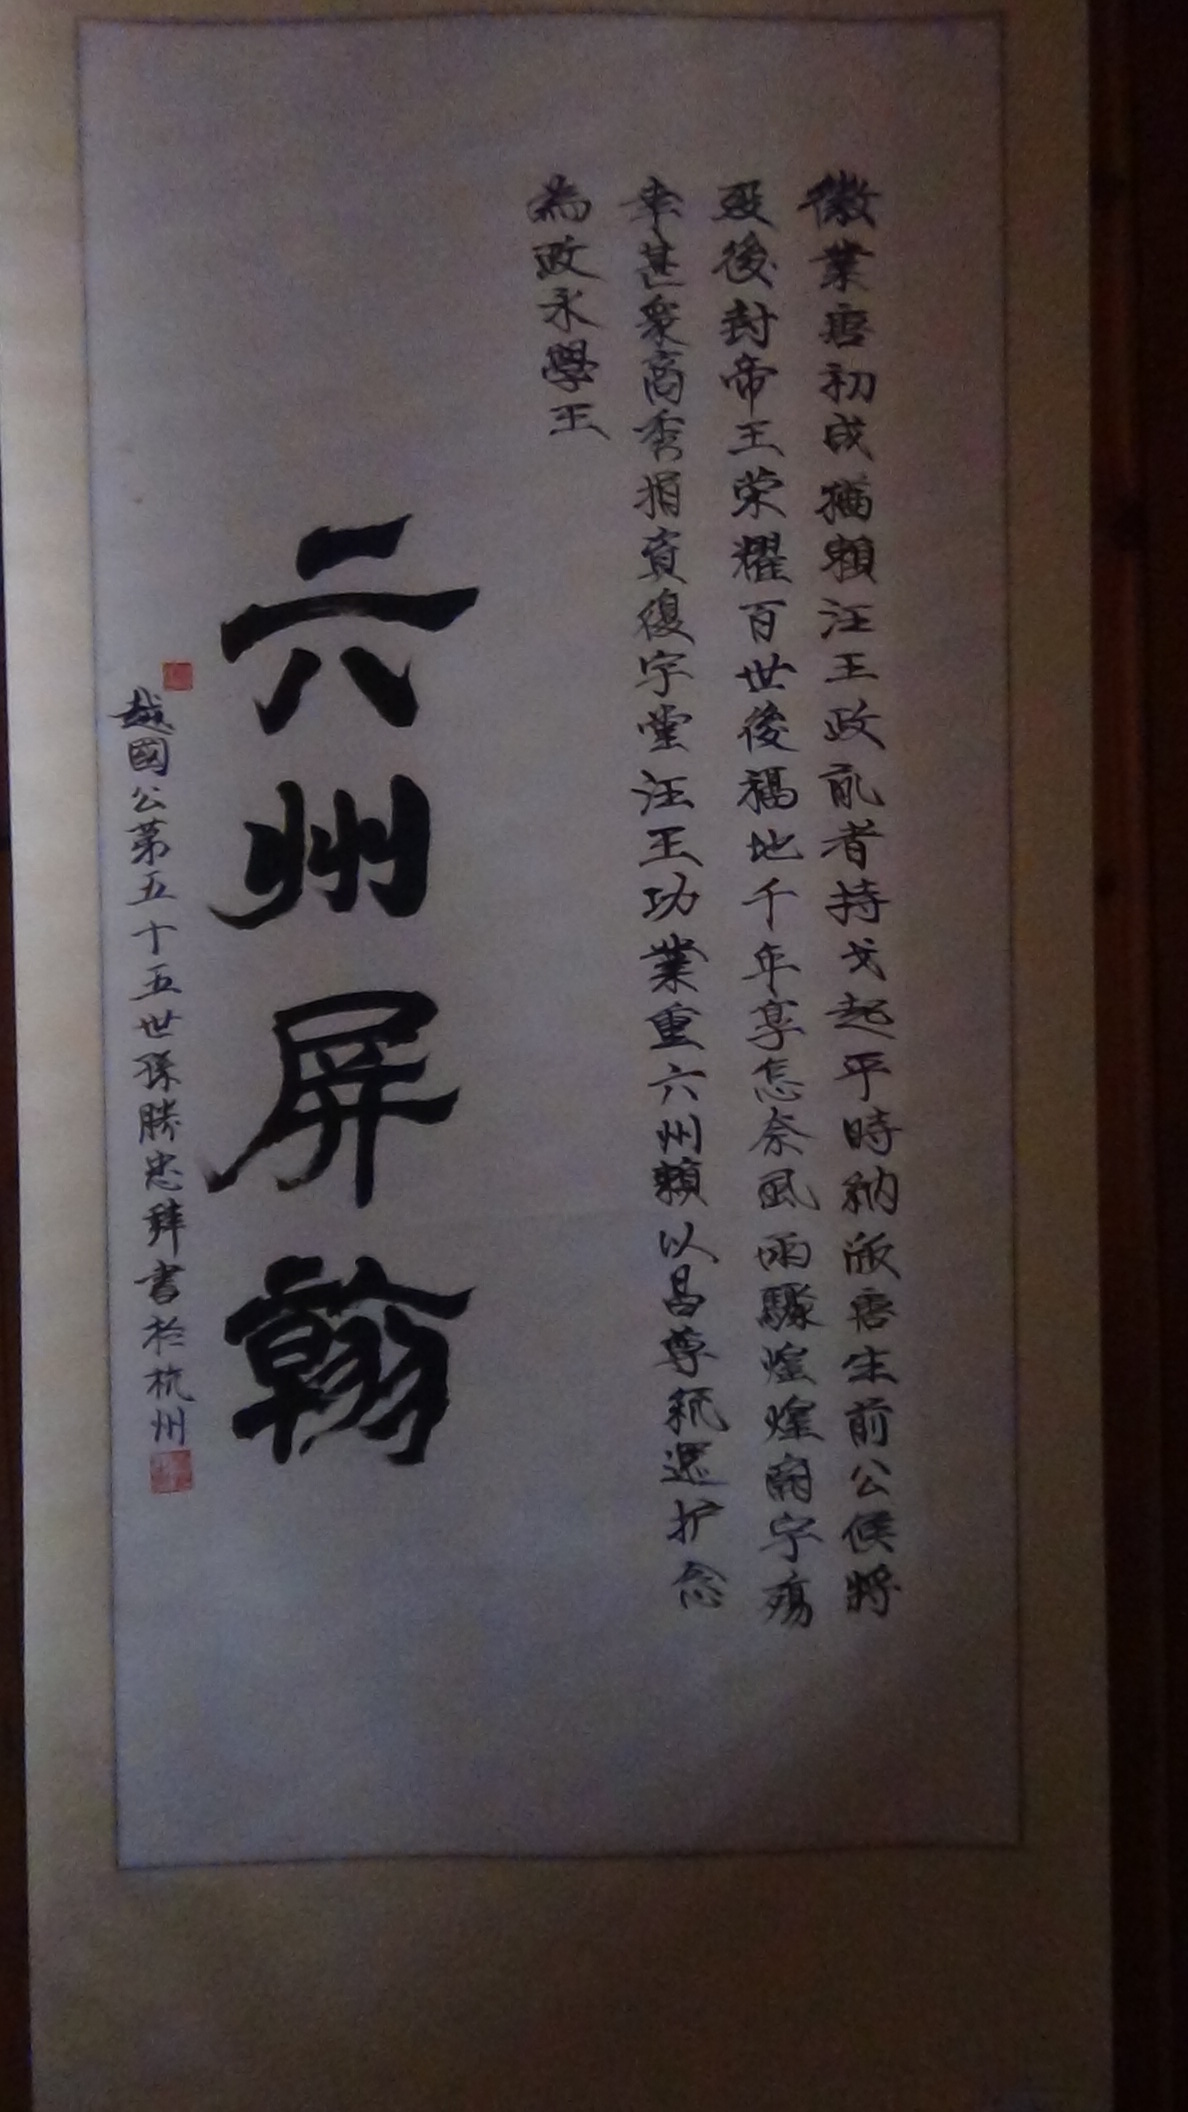 徽業唐初成猶賴汪王政亂者持戈起平時納版唐生前公侯將
歿後封帝王荣耀百世後福地千年享怎奈風雨驟煌煌廟宇殤
幸甚眾商秀捐資復宇堂汪王功業重六州賴以昌尊稱還扩念
為政永學王
六州屏翰
越國公第五十五世孫勝忠拜書於杭州